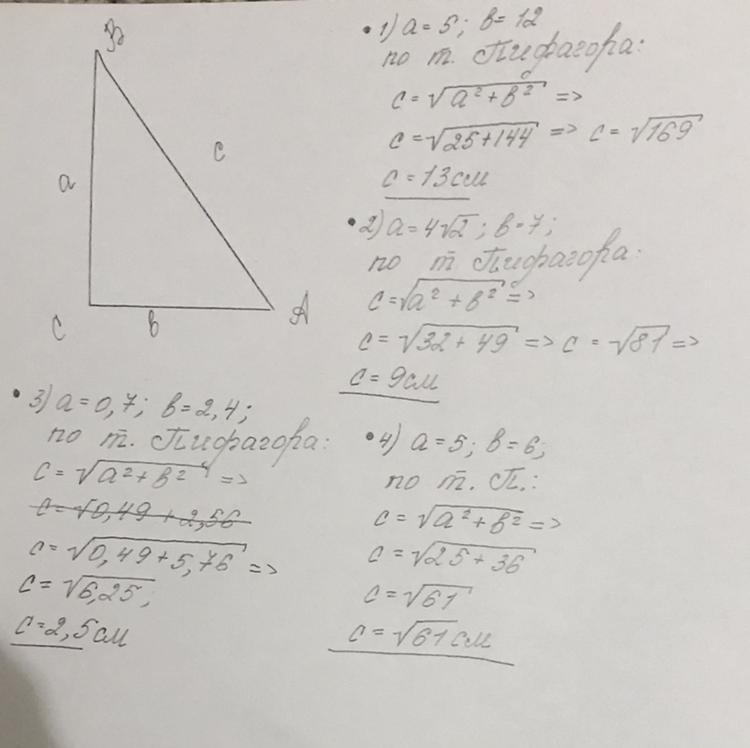 B
a
c
C
b
A
• 1) a = 5; b = 12
по т. Пифагора:
c = √a² + b² =>
c = √25 + 144 => c = √169
c = 13 см
• 2) a = 4√2; b = 7;
по т Пифагора:
c = √a² + b² =>
c = √32 + 49 => c = √81 =>
c = 9 см
• 3) a = 0,7; b = 2,4;
по т. Пифагора:
c = √a² + b² =>
c = √0,49 + 2,56
c = √0,49 + 5,76 =>
c = √6,25;
c = 2,5 см
• 4) a = 5; b = 6;
по т. П.:
c = √a² + b² =>
c = √25 + 36
c = √61
c = √61 см